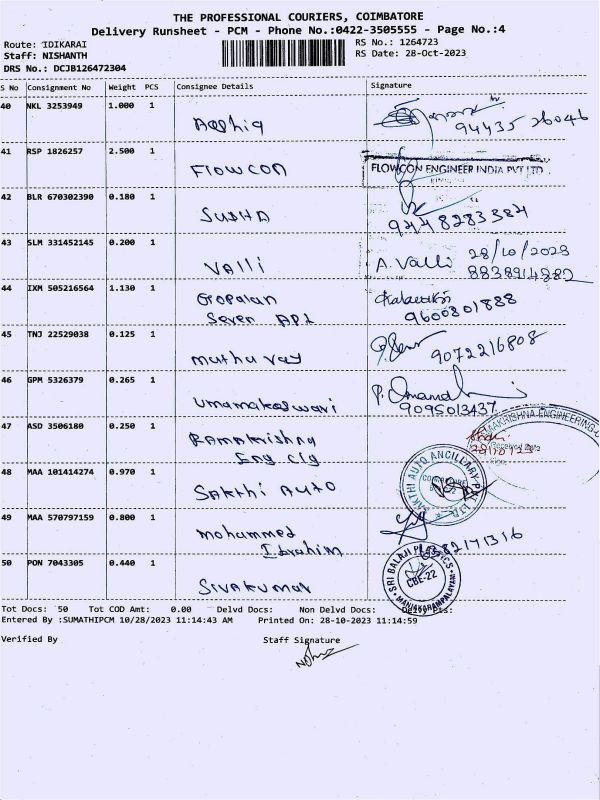 THE PROFESSIONAL COURIERS, COIMBATORE
Delivery Runsheet - PCM - Phone No.:0422-3505555 - Page No.:4
Route: IDIKARAI RS No.: 1264723
Staff: NISHANTH RS Date: 28-Oct-2023
DRS No.: DCJB126472304
S No Consignment No Weight PCS Consignee Details Signature
40 NKL 3253949 1.000 1
Aashiq 94435 26046
41 RSP 1826257 2.500 1
Flowcon FLOWCON ENGINEER INDIA PVT LTD
42 BLR 670302390 0.180 1
SUBHA 9448283384
43 SLM 331452145 0.200 1
Valli A. Valli 28/10/2023
8838914882
44 IXM 505216564 1.130 1
Gopalan
Seven Apt 9600801888
45 TNJ 22529038 0.125 1
Muthu raj 9072216808
46 GPM 5326379 0.265 1
Umamakeswari 9095013437
47 ASD 3506180 0.250 1
Ramakrishna
Eng clg
48 MAA 101414274 0.970 1
Sakthi Auto SAKTHI AUTO ANCILLARY PVT. LTD.
49 MAA 570797159 0.800 1
Mohammed
Ibrahim
50 PON 7043305 0.440 1
Sivakumar SRI BALAJI PLASTICS
CBE-22
MANIAKARAMPALAYAM
Tot Docs: 50 Tot COD Amt: 0.00 Delvd Docs: Non Delvd Docs: Delvd Pts:
Entered By :SUMATHIPCM 10/28/2023 11:14:43 AM Printed On: 28-10-2023 11:14:59
Verified By Staff Signature